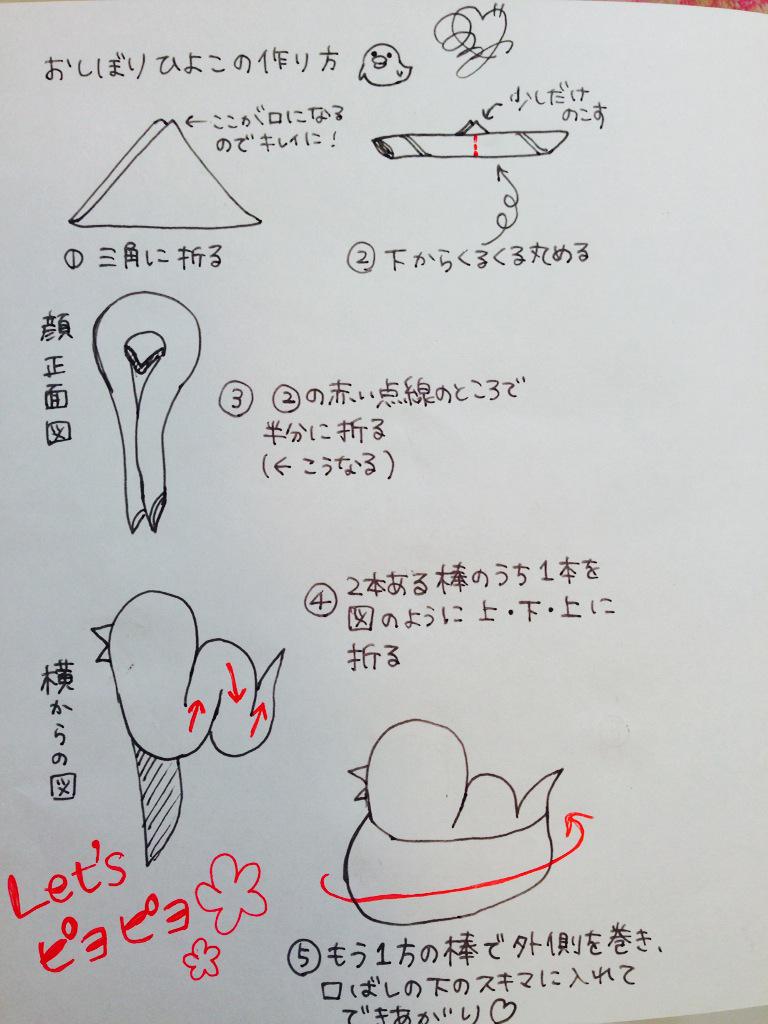 おしぼりひよこの作り方
←ここが口になる
のでキレイに！
少しだけ
のこす
① 三角に折る
② 下からくるくる丸める
顔正面図
③ ②の赤い点線のところで
半分に折る
(←こうなる)
④ 2本ある棒のうち1本を
図のように上・下・上に
折る
横からの図
Let's
ピヨピヨ
⑤ もう1方の棒で外側を巻き、
口ばしの下のスキマに入れて
できあがり♡